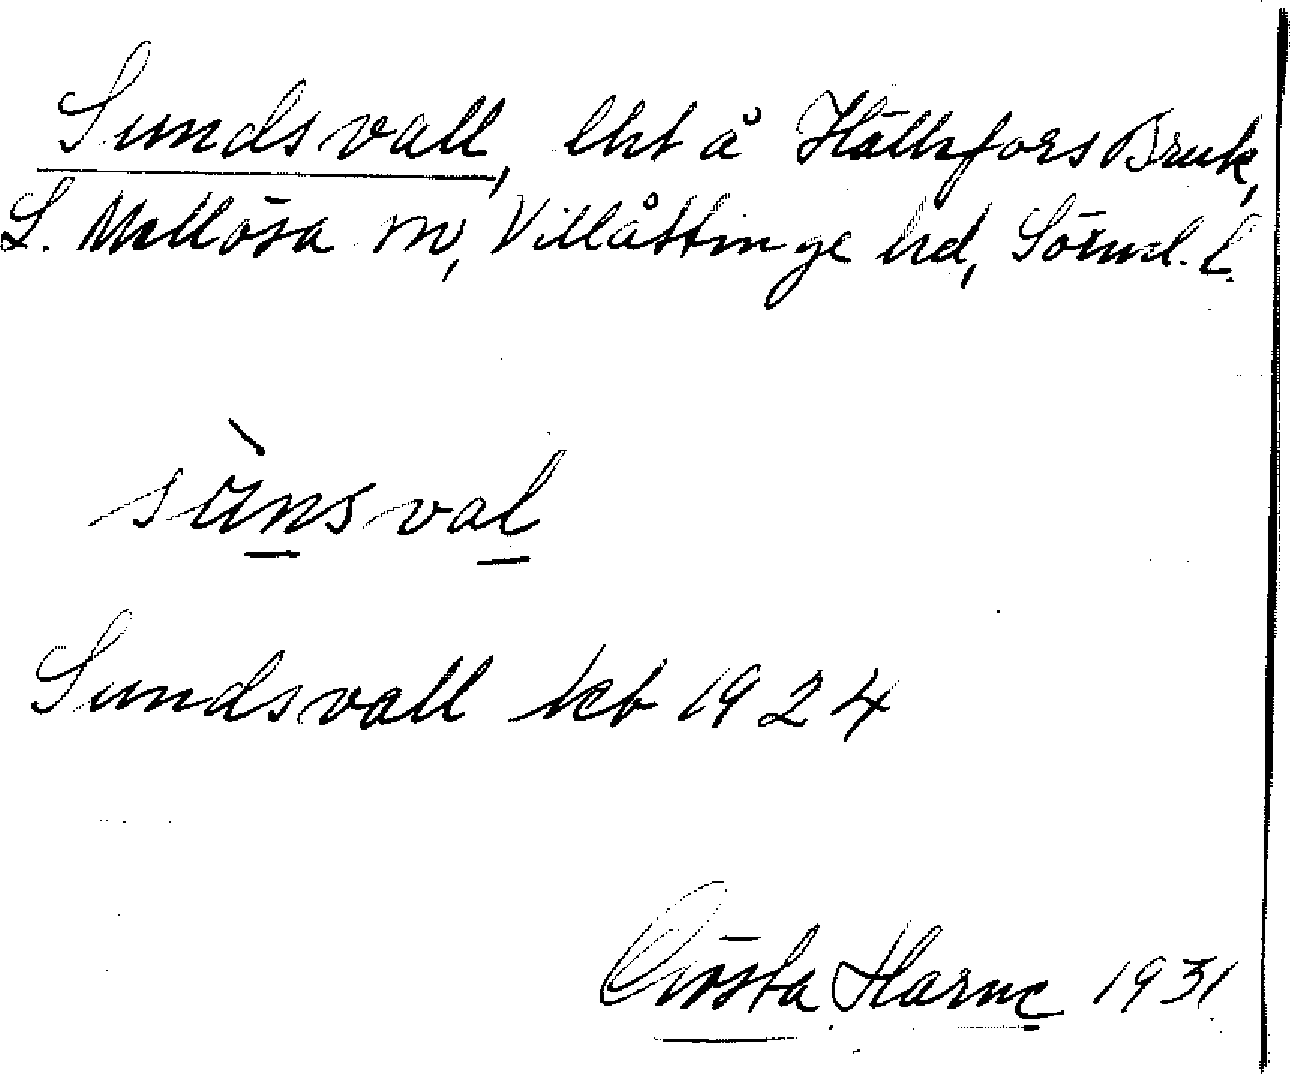 Sundsvall, lht å Hällefors Bruk,
L. Mellösa sn, Villåttinge hd, Sörml. l.
sùnsval
Sundsvall kb 1924
Gösta Harne 1931